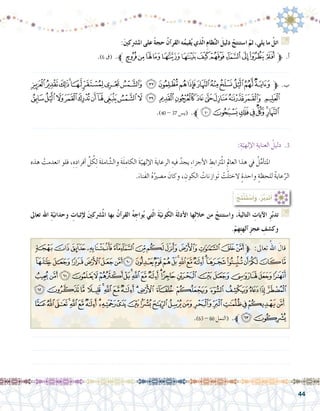 اتلُ ما يلي، ثمّ استنتجْ دليلَ النظامِ الذي يُقيمُه القرآنُ حجةً على المشركين:
أ. ﴿ أَفَلَمْ يَنْظُرُوا إِلَى السَّمَاءِ فَوْقَهُمْ كَيْفَ بَنَيْنَاهَا وَزَيَّنَّاهَا وَمَا لَهَا مِنْ فُرُوجٍ ﴾. (ق 6).
ب. ﴿ وَآيَةٌ لَهُمُ اللَّيْلُ نَسْلَخُ مِنْهُ النَّهَارَ فَإِذَا هُمْ مُظْلِمُونَ ﴿٣٧﴾ وَالشَّمْسُ تَجْرِي لِمُسْتَقَرٍّ لَهَا ذَلِكَ تَقْدِيرُ الْعَزِيزِ
الْعَلِيمِ ﴿٣٨﴾ وَالْقَمَرَ قَدَّرْنَاهُ مَنَازِلَ حَتَّى عَادَ كَالْعُرْجُونِ الْقَدِيمِ ﴿٣٩﴾ لَا الشَّمْسُ يَنْبَغِي لَهَا أَنْ تُدْرِكَ الْقَمَرَ وَلَا اللَّيْلُ سَابِقُ
النَّهَارِ وَكُلٌّ فِي فَلَكٍ يَسْبَحُونَ ﴿٤٠﴾ ﴾. (يس 37 - 40).
3. دليلُ العنايةِ الإلهيّة:
المتأمّلُ في هذا العالمِ المترابطِ الأجزاء، يجدُ فيه الرعايةَ الإلهيّةَ الكاملةَ والشاملةَ لكلِّ أفرادِه، فلو انعدمتْ هذه
الرعايةُ للحظةٍ واحدةٍ لاختلّتْ توازناتُ الكون، وكان مصيرُه الفناءَ.
أتدبّرُ، وأستنتجُ
تدبّرِ الآياتِ التاليةَ، واستنتجْ من خلالها الأدلةَ الكونيّةَ التي يُواجِهُ القرآنُ بها المشركينَ لإثباتِ وحدانيّةِ الله تعالى
وكشفِ عجزِ آلهتِهم.
قال الله تعالى: ﴿ أَمَّنْ خَلَقَ السَّمَاوَاتِ وَالْأَرْضَ وَأَنْزَلَ لَكُمْ مِنَ السَّمَاءِ مَاءً فَأَنْبَتْنَا بِهِ حَدَائِقَ ذَاتَ بَهْجَةٍ
مَا كَانَ لَكُمْ أَنْ تُنْبِتُوا شَجَرَهَا أَإِلَهٌ مَعَ اللَّهِ بَلْ هُمْ قَوْمٌ يَعْدِلُونَ ﴿٦٠﴾ أَمَّنْ جَعَلَ الْأَرْضَ قَرَارًا وَجَعَلَ خِلَالَهَا
أَنْهَارًا وَجَعَلَ لَهَا رَوَاسِيَ وَجَعَلَ بَيْنَ الْبَحْرَيْنِ حَاجِزًا أَإِلَهٌ مَعَ اللَّهِ بَلْ أَكْثَرُهُمْ لَا يَعْلَمُونَ ﴿٦١﴾ أَمَّنْ يُجِيبُ
الْمُضْطَرَّ إِذَا دَعَاهُ وَيَكْشِفُ السُّوءَ وَيَجْعَلُكُمْ خُلَفَاءَ الْأَرْضِ أَإِلَهٌ مَعَ اللَّهِ قَلِيلًا مَا تَذَكَّرُونَ ﴿٦٢﴾
أَمَّنْ يَهْدِيكُمْ فِي ظُلُمَاتِ الْبَرِّ وَالْبَحْرِ وَمَنْ يُرْسِلُ الرِّيَاحَ بُشْرًا بَيْنَ يَدَيْ رَحْمَتِهِ أَإِلَهٌ مَعَ اللَّهِ تَعَالَى اللَّهُ عَمَّا
يُشْرِكُونَ ﴿٦٣﴾ ﴾. (النمل 60 - 63).
44